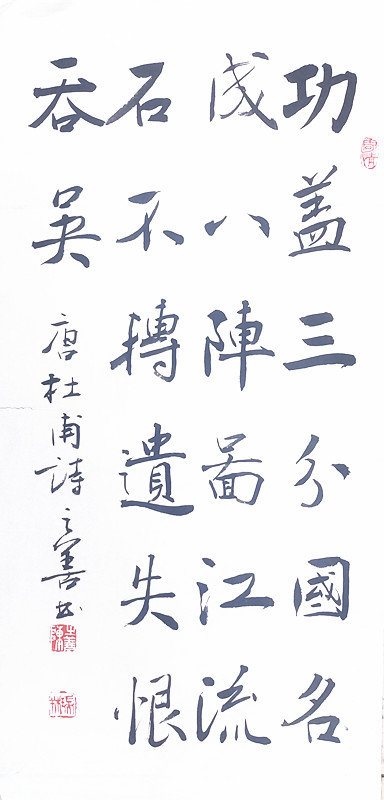 功盖三分國名
成八陣圖江流
石不轉遺失恨
吞吴
唐杜甫詩之善书